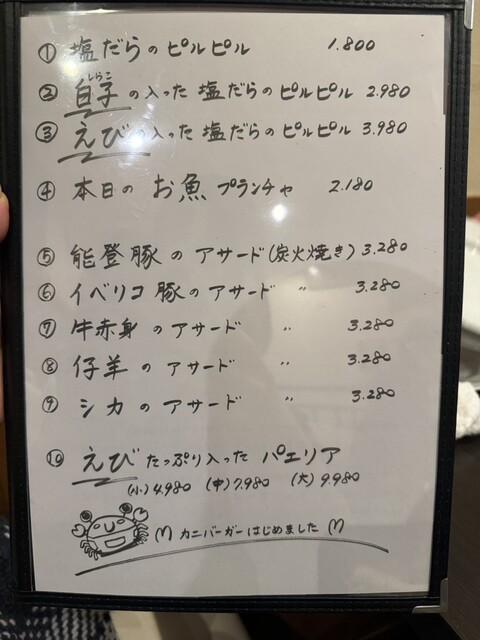 ① 塩だらのピルピル 1.800
しらこ
② 白子の入った塩だらのピルピル 2.980
③ えびの入った塩だらのピルピル 3.980
④ 本日のお魚プランチャ 2.180
⑤ 能登豚のアサード(炭火焼き) 3.280
⑥ イベリコ豚のアサード 〃 3.280
⑦ 牛赤身のアサード 〃 3.280
⑧ 仔羊のアサード 〃 3.280
⑨ シカのアサード 〃 3.280
⑩ えびたっぷり入ったパエリア
(小) 4.980 (中) 7.980 (大) 9.980
カニバーガーはじめました